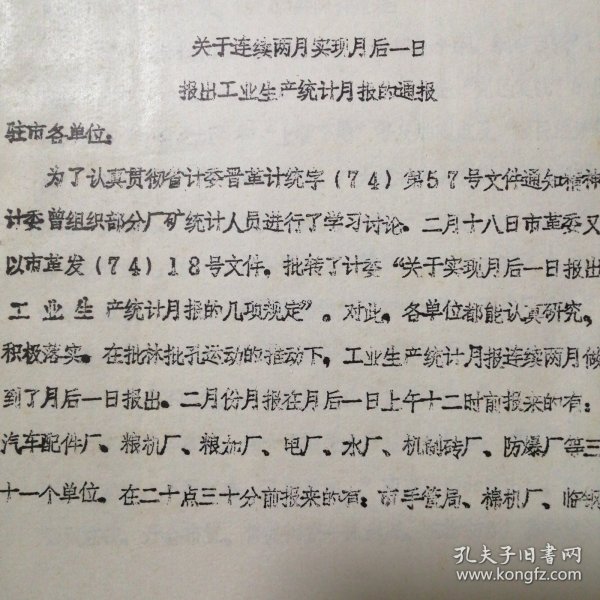 关于连续两月实现月后一日
报出工业生产统计月报的通报
驻市各单位:
为了认真贯彻省计委晋革计统字(74)第57号文件通知精神
计委曾组织部分厂矿统计人员进行了学习讨论。二月十八日市革委又
以市革发(74)18号文件,批转了计委“关于实现月后一日报出
工业生产统计月报的几项规定”。对此,各单位都能认真研究,
积极落实。在批林批孔运动的推动下,工业生产统计月报连续两月做
到了月后一日报出。二月份月报在月后一日上午十二时前报来的有:
汽车配件厂、粮机厂、粮加厂、电厂、水厂、机制砖厂、防爆厂等三
十一个单位。在二十点三十分前报来的有:市手管局、棉机厂、临钢
孔夫子旧书网
www.kongfz.com